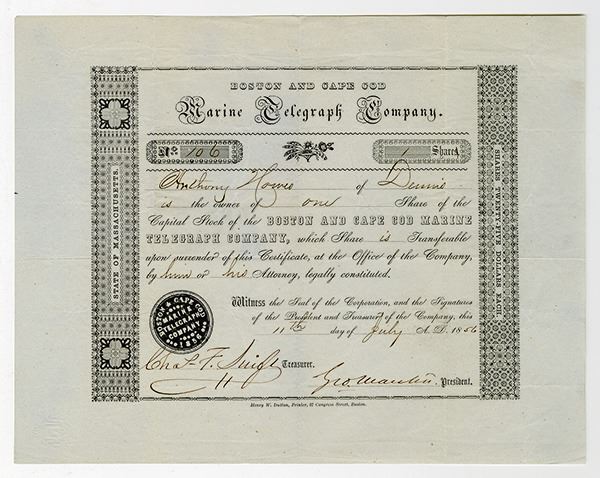 BOSTON AND CAPE COD
Marine Telegraph Company.
No. 106
1 Shares
Anthony Howes of Dennis
is the owner of one Share of the
Capital Stock of the BOSTON AND CAPE COD MARINE
TELEGRAPH COMPANY, which Share is Transferable
upon surrender of this Certificate, at the Office of the Company,
by him or his Attorney, legally constituted.
Witness the Seal of the Corporation, and the Signatures
of the President and Treasurer of the Company, this
11th day of July A. D. 1856
BOSTON & CAPE COD
MARINE
TELEGRAPH
COMPANY
1856
Chas. F. Swift Treasurer.
Geo Marston President.
STATE OF MASSACHUSETTS.
SHARES TWENTY-FIVE DOLLARS EACH.
Henry W. Dutton, Printer, 37 Congress Street, Boston.